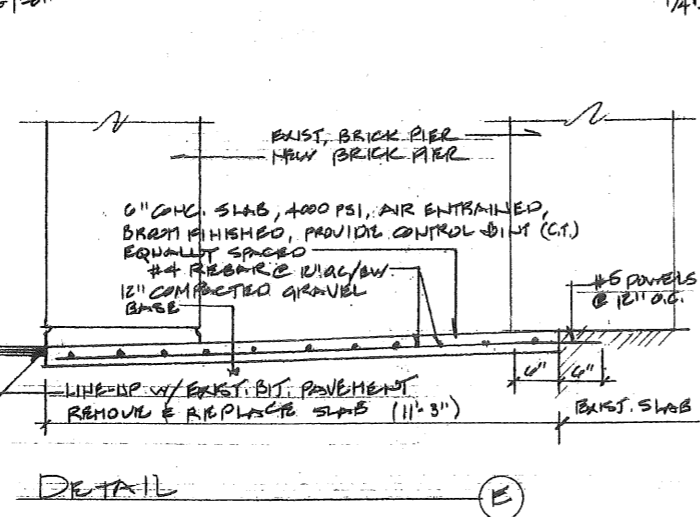 1/4"
EXIST. BRICK PIER
NEW BRICK PIER
6" CONC. SLAB, 4000 PSI, AIR ENTRAINED,
BROOM FINISHED, PROVIDE CONTROL JOINT (C.T.)
EQUALLY SPACED
#4 REBAR @ 12" O.C./EW
12" COMPACTED GRAVEL
BASE
#5 DOWELS
@ 12" O.C.
6" 6"
LINE-UP W/ EXIST. BIT. PAVEMENT
REMOVE & REPLACE SLAB (11'-3")
EXIST. SLAB
DETAIL E